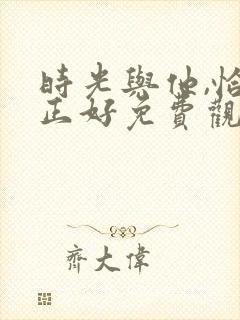 時光與他,恰
正好免費觀
齊大偉